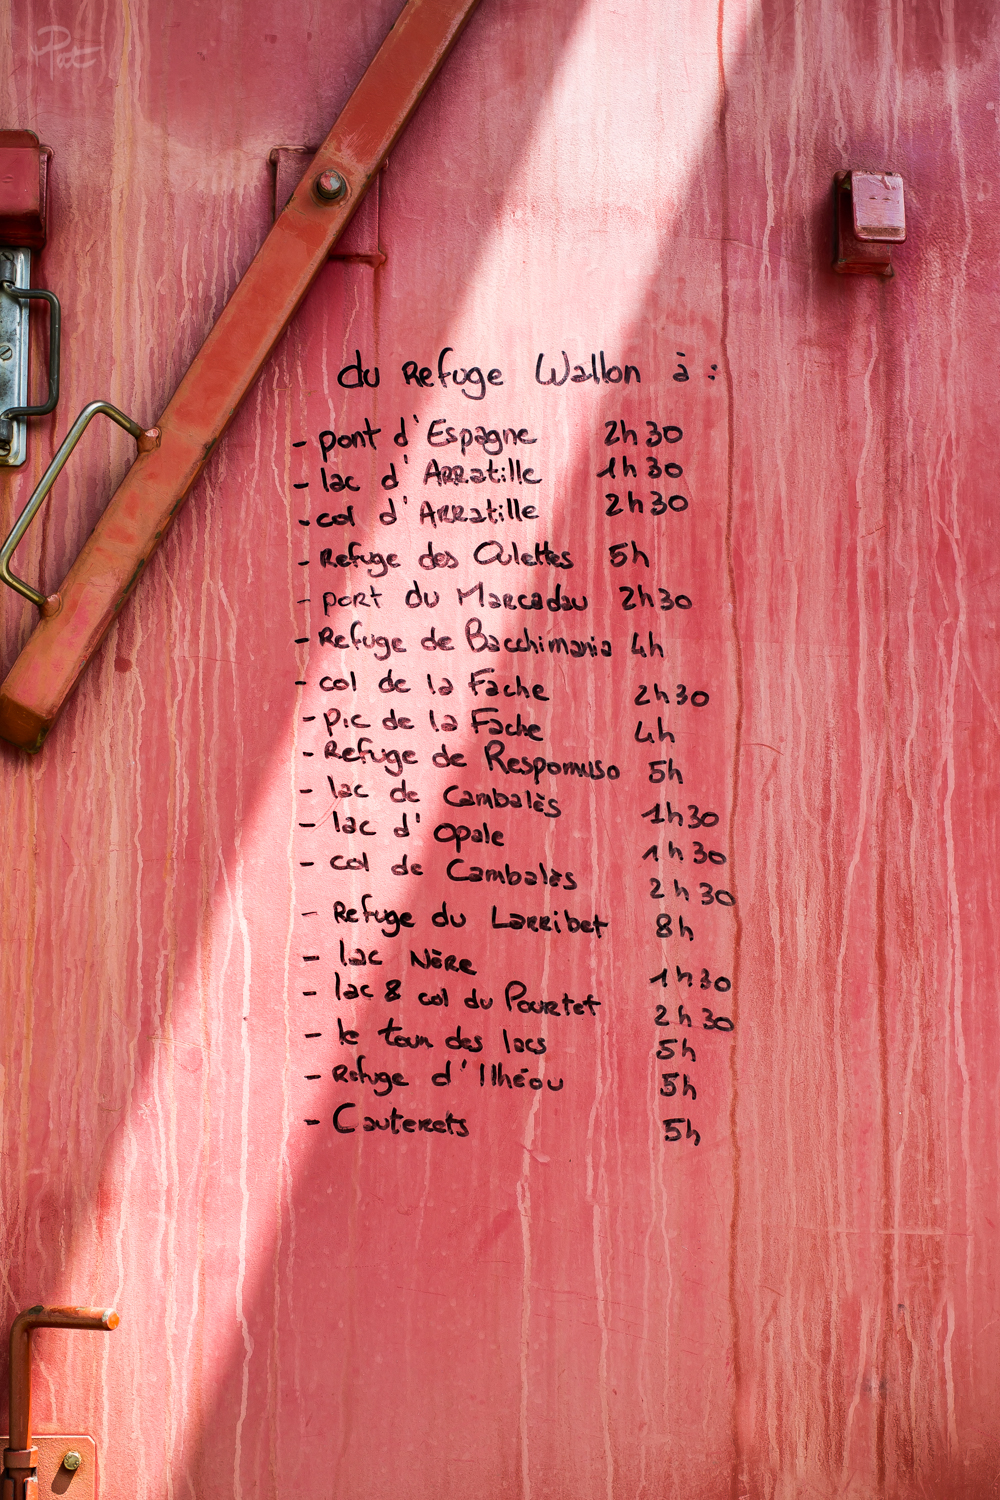 Pat
du Refuge Wallon à :
- pont d'Espagne 2h30
- lac d'Arratille 1h30
- col d'Arratille 2h30
- Refuge des Oulettes 5h
- port du Marcadau 2h30
- Refuge de Bacchimania 4h
- col de la Fache 2h30
- pic de la Fache 4h
- Refuge de Respomuso 5h
- lac de Cambalès 1h30
- lac d'Opale 1h30
- col de Cambalès 2h30
- Refuge du Larribet 8h
- lac Nère 1h30
- lac & col du Pourtet 2h30
- le tour des lacs 5h
- Refuge d'Ilhéou 5h
- Cauterets 5h